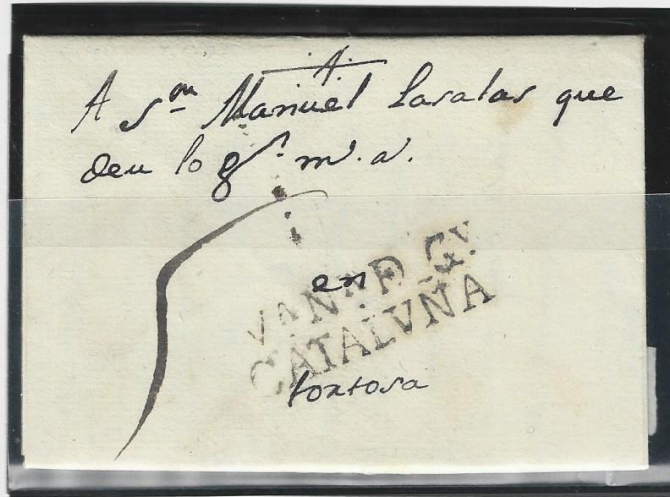 A
A S.on Manuel Lasalas que
Deu lo g.e m.s a.s
en
VAN.A D G.V
CATALVÑA
tortosa